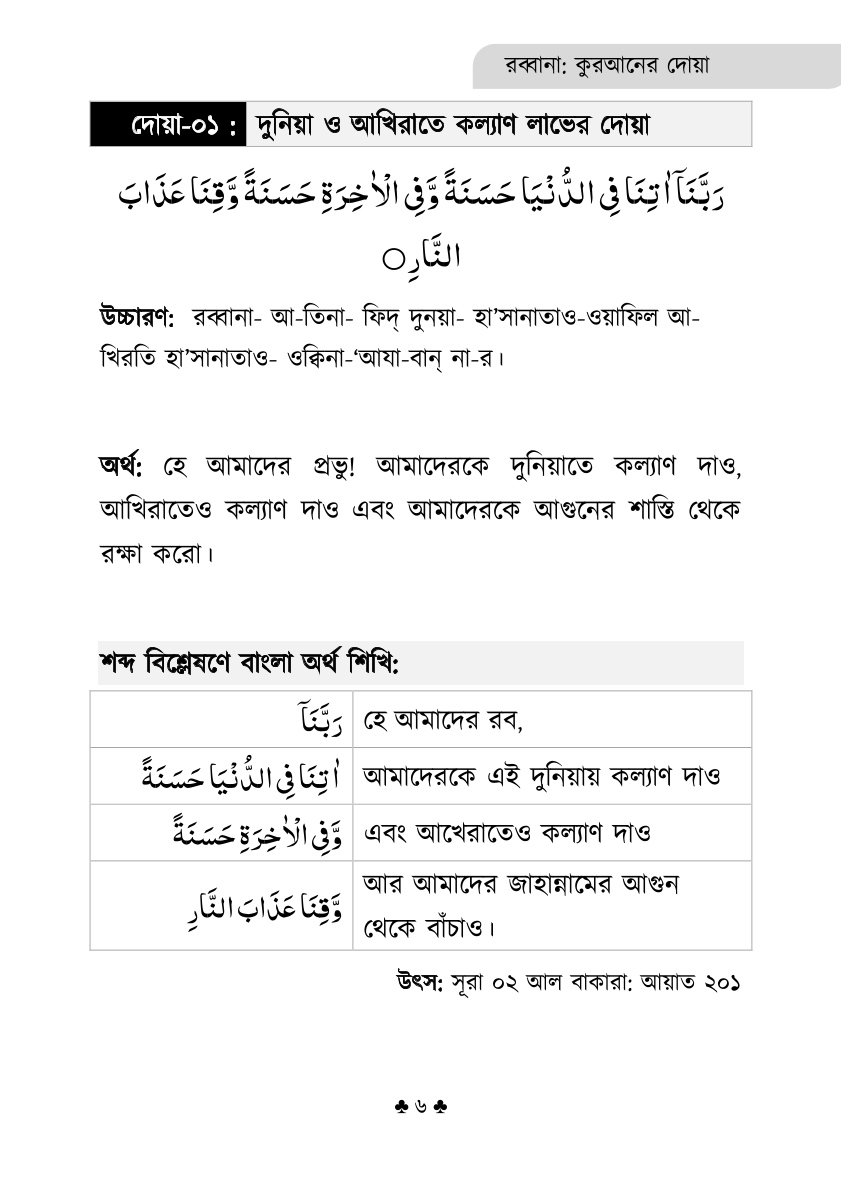 রব্বানা: কুরআনের দোয়া
দোয়া-০১ : দুনিয়া ও আখিরাতে কল্যাণ লাভের দোয়া
رَبَّنَاۤ اٰتِنَا فِی الدُّنْیَا حَسَنَةً وَّفِی الْاٰخِرَةِ حَسَنَةً وَّقِنَا عَذَابَ
النَّارِ○
উচ্চারণ: রব্বানা- আ-তিনা- ফিদ্ দুনয়া- হা’সানাতাও-ওয়াফিল আ-
খিরতি হা’সানাতাও- ওক্বিনা-‘আযা-বান্ না-র।
অর্থ: হে আমাদের প্রভু! আমাদেরকে দুনিয়াতে কল্যাণ দাও,
আখিরাতেও কল্যাণ দাও এবং আমাদেরকে আগুনের শাস্তি থেকে
রক্ষা করো।
শব্দ বিশ্লেষণে বাংলা অর্থ শিখি:
رَبَّنَاۤ হে আমাদের রব,
اٰتِنَا فِی الدُّنْیَا حَسَنَةً আমাদেরকে এই দুনিয়ায় কল্যাণ দাও
وَّفِی الْاٰخِرَةِ حَسَنَةً এবং আখেরাতেও কল্যাণ দাও
وَّقِنَا عَذَابَ النَّارِ আর আমাদের জাহান্নামের আগুন
থেকে বাঁচাও।
উৎস: সূরা ০২ আল বাকারা: আয়াত ২০১
♣ ৬ ♣